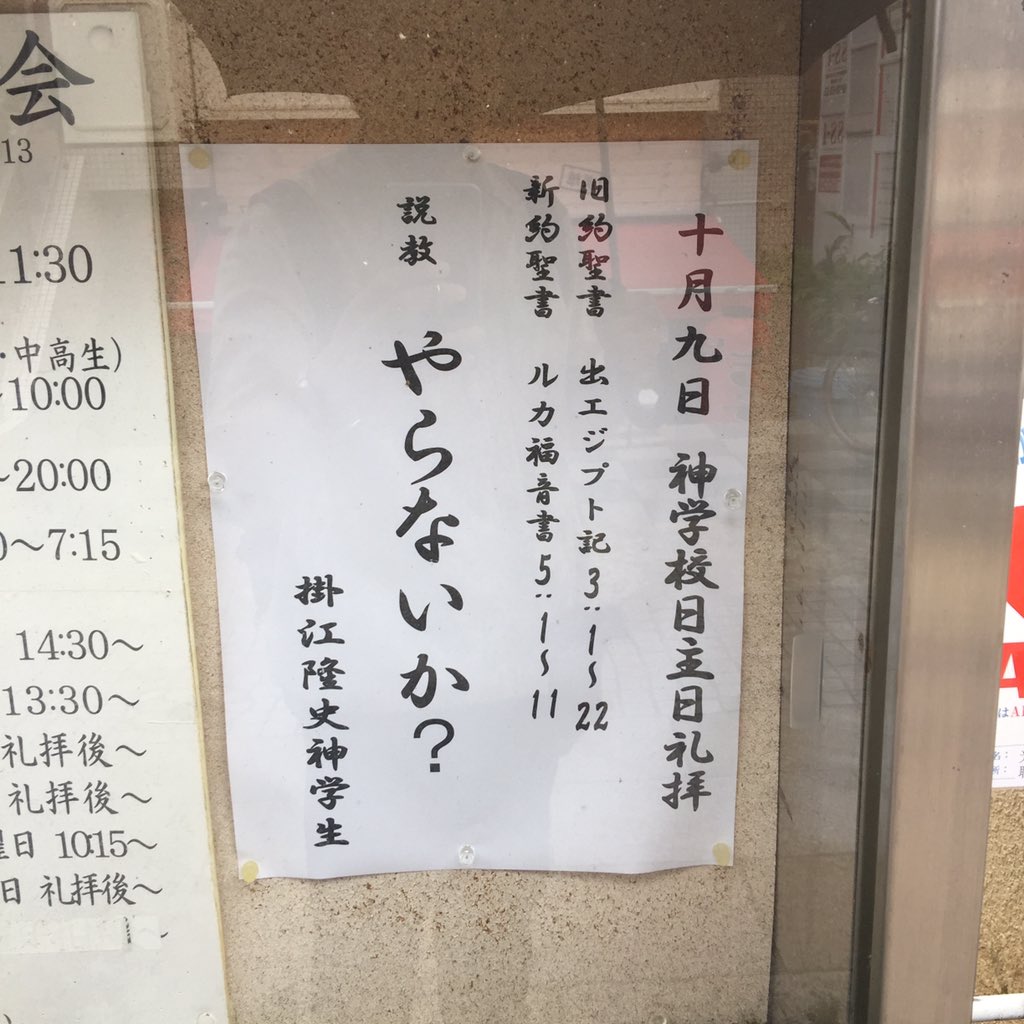 十月九日 神学校日主日礼拝
旧約聖書 出エジプト記3:1~22
新約聖書 ルカ福音書5:1~11
説教 やらないか?
掛江隆史神学生
会
13
11:30
・中高生)
~10:00
~20:00
0~7:15
14:30~
13:30~
礼拝後~
礼拝後~
曜日 10:15~
日 礼拝後~